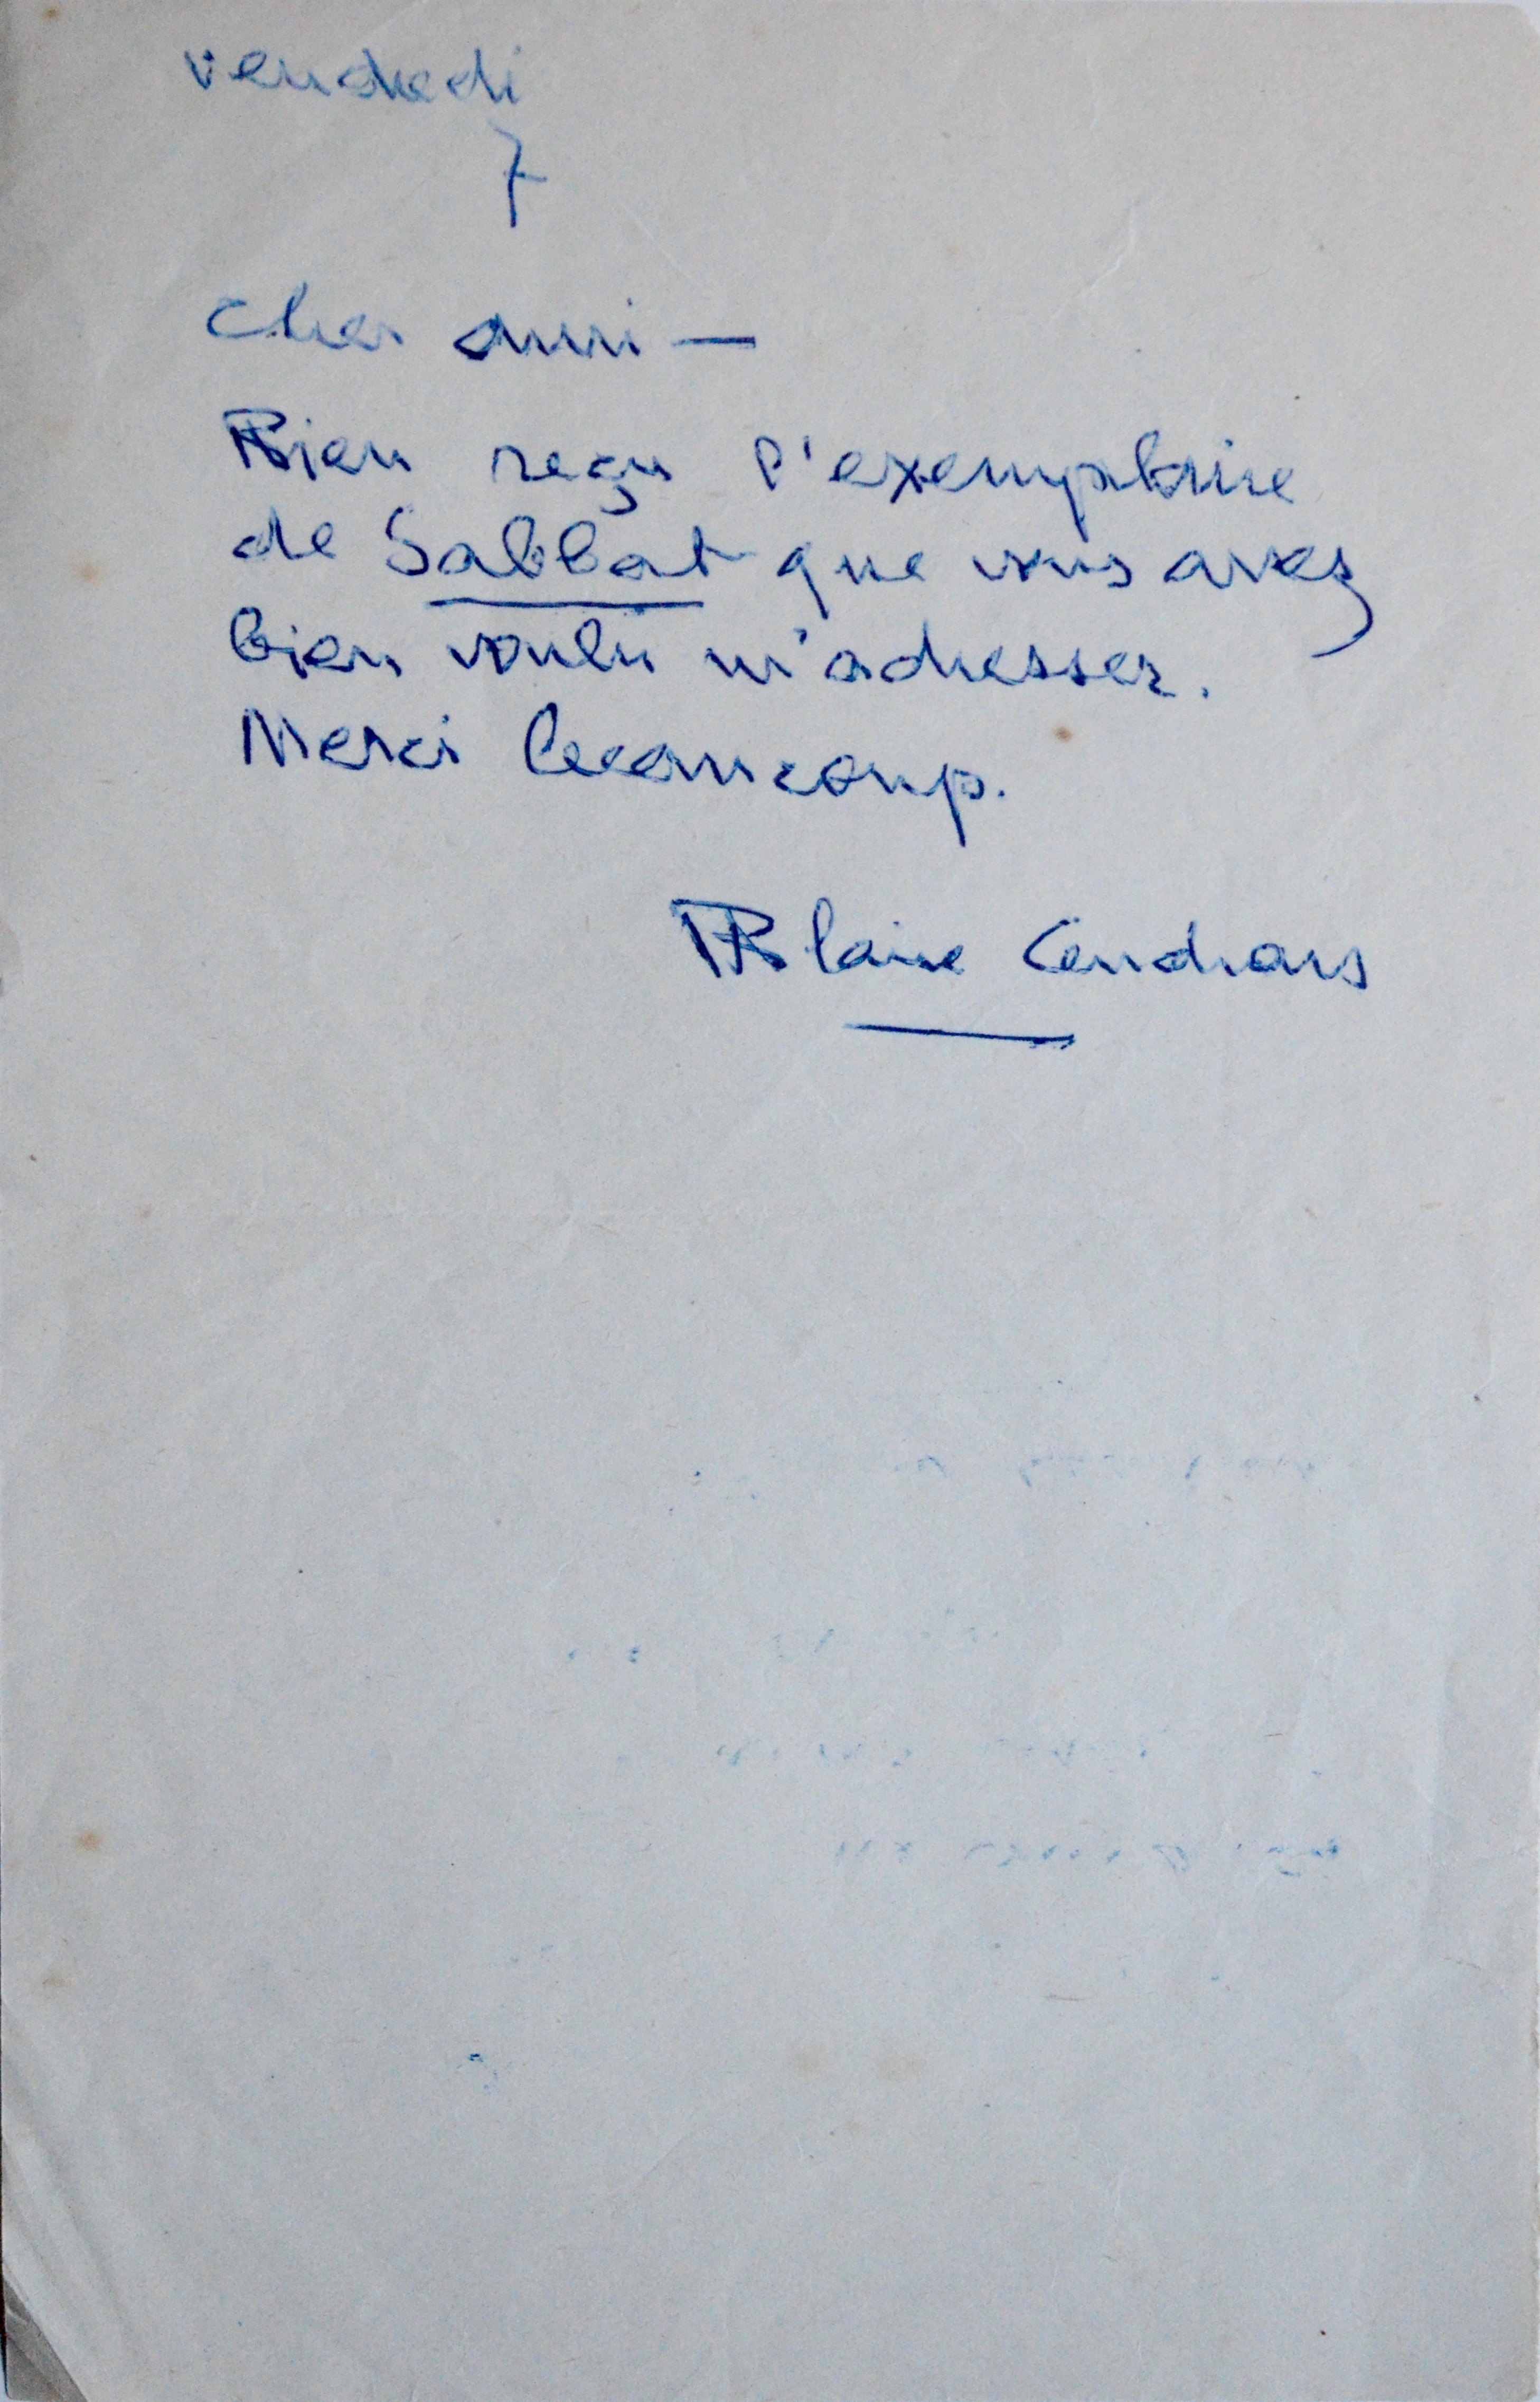 vendredi
7
Cher ami —
Bien reçu l'exemplaire
de Sabbat que vous avez
bien voulu m'adresser.
Merci beaucoup.
Blaise Cendrars